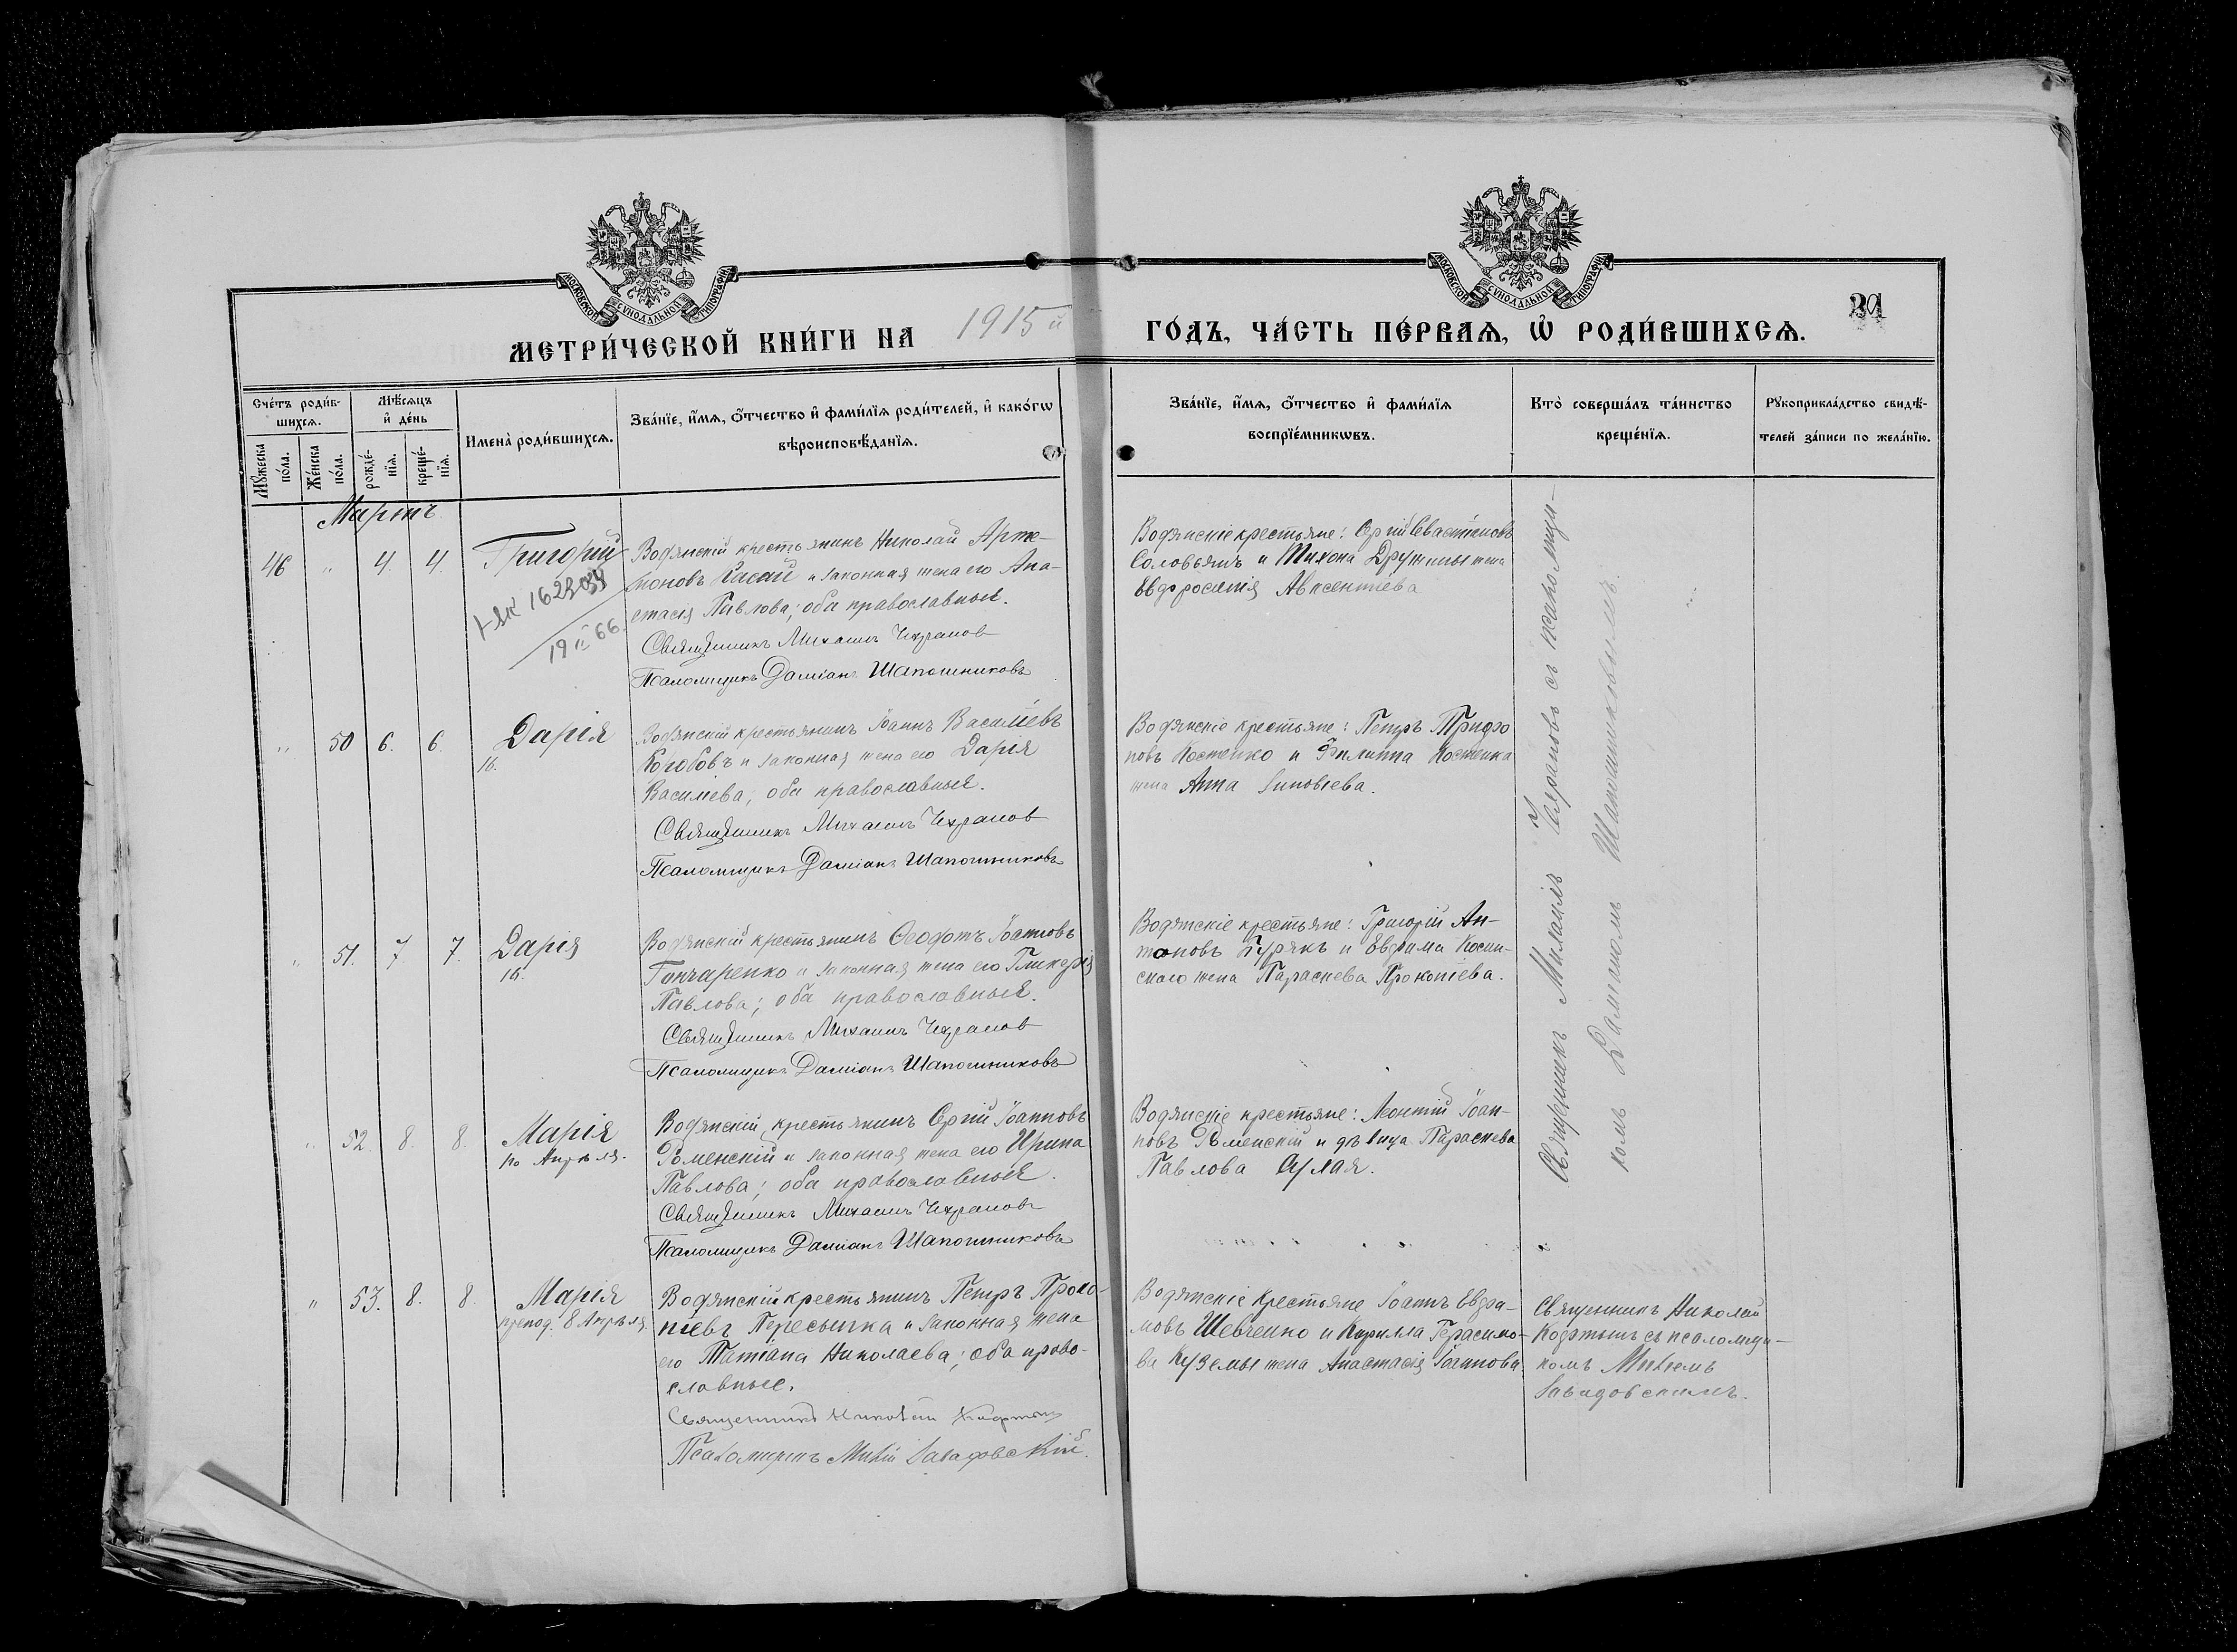 МОСКОВСКОЙ СУНОДАЛЬНОЙ ТИПОГРАФІИ
МОСКОВСКОЙ СУНОДАЛЬНОЙ ТИПОГРАФІИ
МЕТРИ́ЧЕСКОЙ КНИ́ГИ НА 1915 й
ГО́ДЪ, ЧА́СТЬ ПЕ́РВАѦ, Ѡ҆ РОДИ́ВШИХСѦ.
Сче́тъ роди́в-
шихсѧ.
Мѣ́сѧцъ
и҆ де́нь
Мꙋ́жеска
по́ла.
Же́нска
по́ла.
рожде́-
нїѧ.
креще́-
нїѧ.
Имена̀ роди́вшихсѧ.
Зва́нїе, и҆́мѧ, ѻ҆́тчество и҆ фами́лїѧ роди́телей, и҆ како́гѡ
вѣроисповѣ́данїѧ.
Зва́нїе, и҆́мѧ, ѻ҆́тчество и҆ фами́лїѧ
воспрїе́мникѡвъ.
Кто̀ соверша́лъ та́инство
креще́нїѧ.
Рꙋкоприкла́дство свидѣ́-
телей за́писи по жела́нїю.
Мартъ
46 " 4. 4. Григорій
19 II 66.
Водянскій крестьянинъ Николай Арте-
моновъ и законная жена его Ана-
стасія Павлова; оба православные.
Священникъ Михаилъ Чехранов
Псаломщикъ Даміанъ Шапошниковъ
Водянскіе крестьяне: Сергій Севастіановъ
Соловьянъ и Тихона Дружины жена
Евфросинія Авксентіева
" 50 6. 6. Дарія
16.
Водянскій крестьянинъ Іоаннъ Василіевъ
и законная жена его Дарія
Василіева; оба православные.
Священникъ Михаилъ Чехранов
Псаломщикъ Даміанъ Шапошниковъ
Водянскіе крестьяне: Петръ Трифо
новъ Костенко и Филиппа Костенка
жена Анна Зиновіева.
" 51. 7. 7. Дарія
16.
Водянскій крестьянинъ Ѳеодотъ Іоанновъ
Гончаренко и законная жена его Гликерія
Павлова; оба православные.
Священникъ Михаилъ Чехранов
Псаломщикъ Даміанъ Шапошниковъ
Водянскіе крестьяне: Григорій Ан-
тоновъ Бурякъ и Евфима Косин-
скаго жена Параскева Прокопіева.
" 52. 8. 8. Марія
Апрѣля.
Водянскій крестьянинъ Сергій Іоанновъ
Роменскій и законная жена его Ирина
Павлова; оба православные.
Священникъ Михаилъ Чехранов
Псаломщикъ Даміанъ Шапошниковъ
Водянскіе крестьяне: Леонтій Іоан-
новъ Роменскій и дѣвица Параскева
Павлова
Священникъ Михаилъ Чехрановъ съ псаломщи-
комъ Даміаномъ Шапошниковымъ.
" 53. 8. 8. Марія
препод. 8 Апрѣля.
Водянскій крестьянинъ Петръ Проко-
піевъ Пересыпка и законная жена
его Татіана Николаева; оба право-
славные.
Священникъ Николай
Псаломщикъ
Водянскіе крестьяне Іоаннъ Евфи-
мовъ Шевченко и Кирилла Герасимо-
ва Куземы жена Анастасія Іоаннова
Священникъ Николай
съ псаломщи-
комъ
Завадовскимъ.